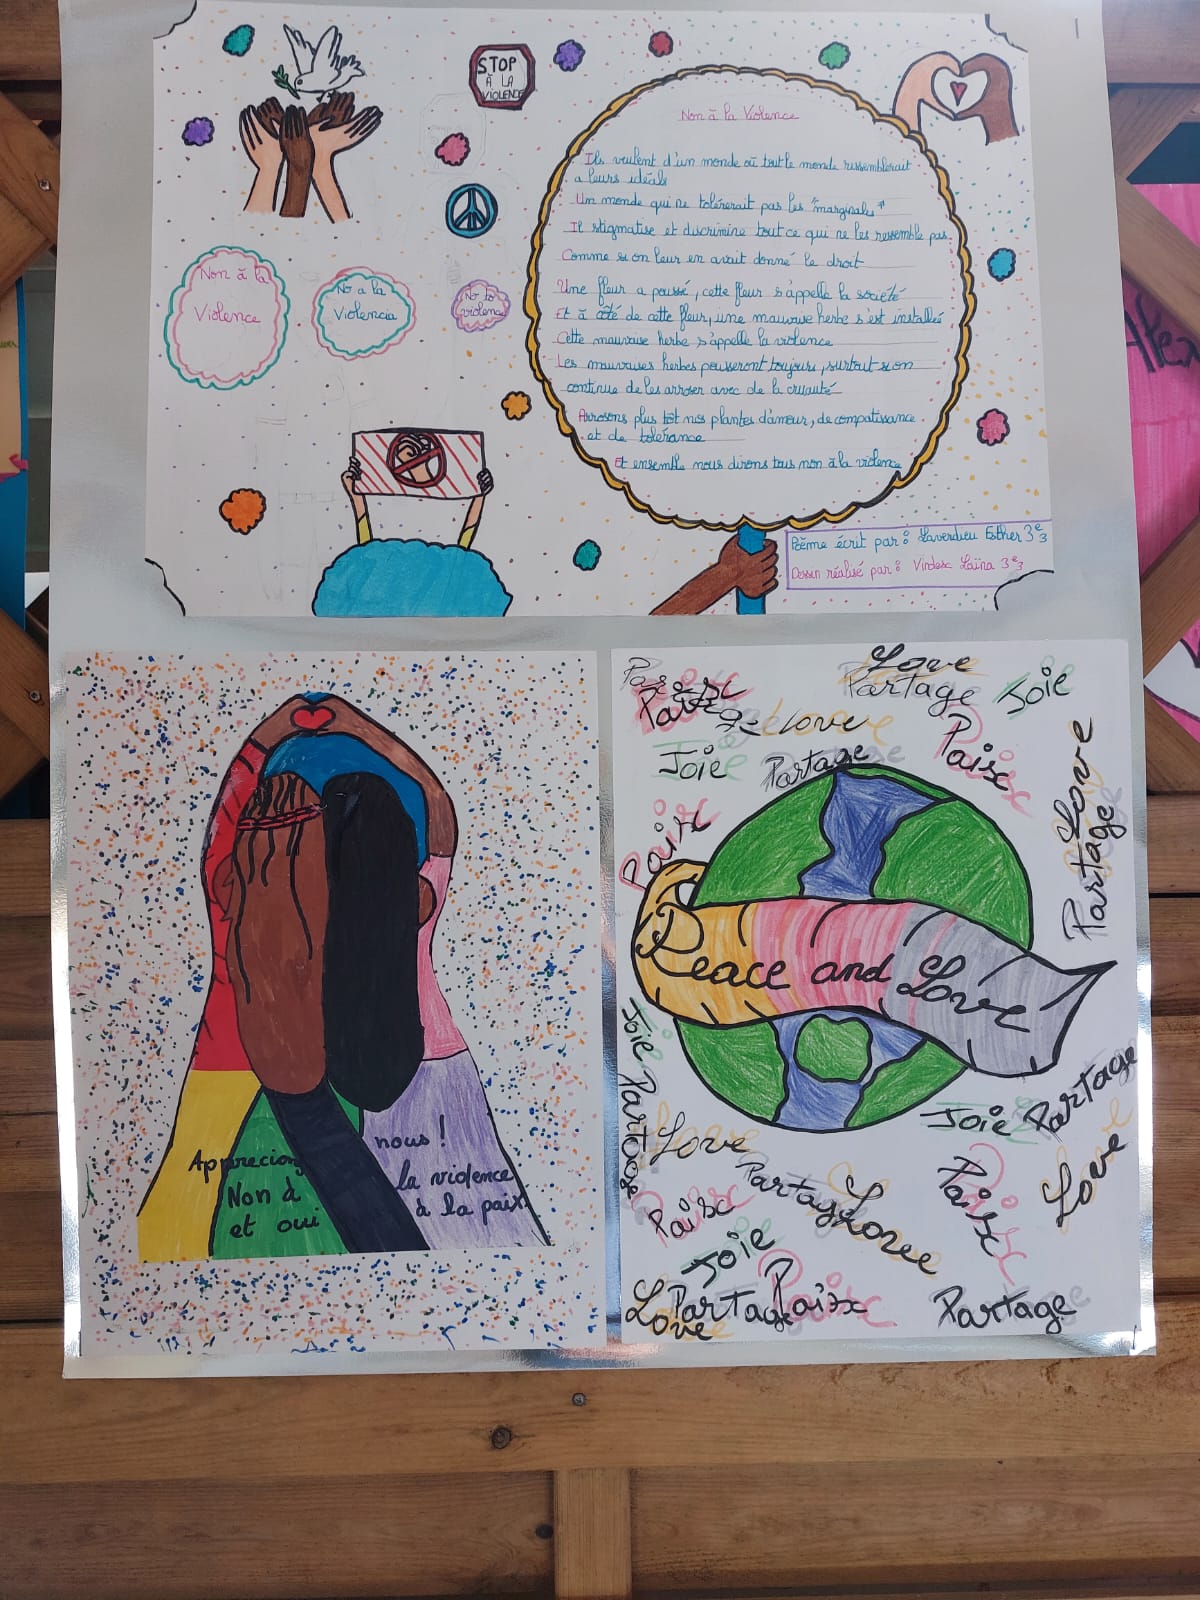 STOP
À LA
VIOLENCE
Non à la
Violence
No a la
Violencia
No to
violence
Non à la Violence
Ils veulent d'un monde où tout le monde ressemblerait
a leurs idéals
Un monde qui ne tolérerait pas les "marginales"
Il stigmatise et discrimine tout ce qui ne les ressemble pas.
Comme si on leur en avait donné le droit
Une fleur a poussé, cette fleur s'appelle la société
Et à côté de cette fleur, une mauvaise herbe s'est installée
Cette mauvaise herbe s'appelle la violence
Les mauvaises herbes pousseront toujours, surtout si on
continue de les arroser avec de la cruauté
Arrosons plus tôt nos plantes d'amour, de compatissance
et de tolérance
Et ensemble nous dirons tous non à la violence
Poème écrit par : Laverdieu Esther 3e3
Dessin réalisé par : Laïna 3e3
Apprecions nous !
Non à la violence
et oui à la paix
Love
Partage
Joie
Partage
Love
Joie
Partage
Paix
Love
Partage
Paix
Peace and Love
Joie
Partage
Joie
Partage
Love
Partage
Love
Paix
Love
Paix
Joie
Love
Partage
Paix
Partage
Love